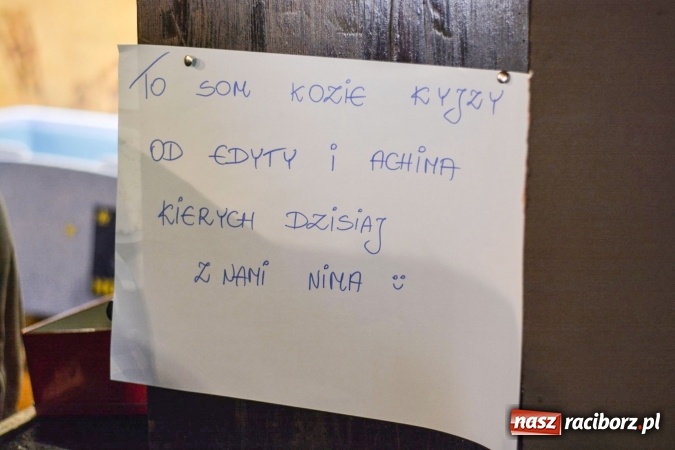 TO SOM KOZIE KYJZY
OD EDYTY i ACHIMA
KIERYCH DZISIAJ
Z NAMI NIMA ü
nasz raciborz.pl